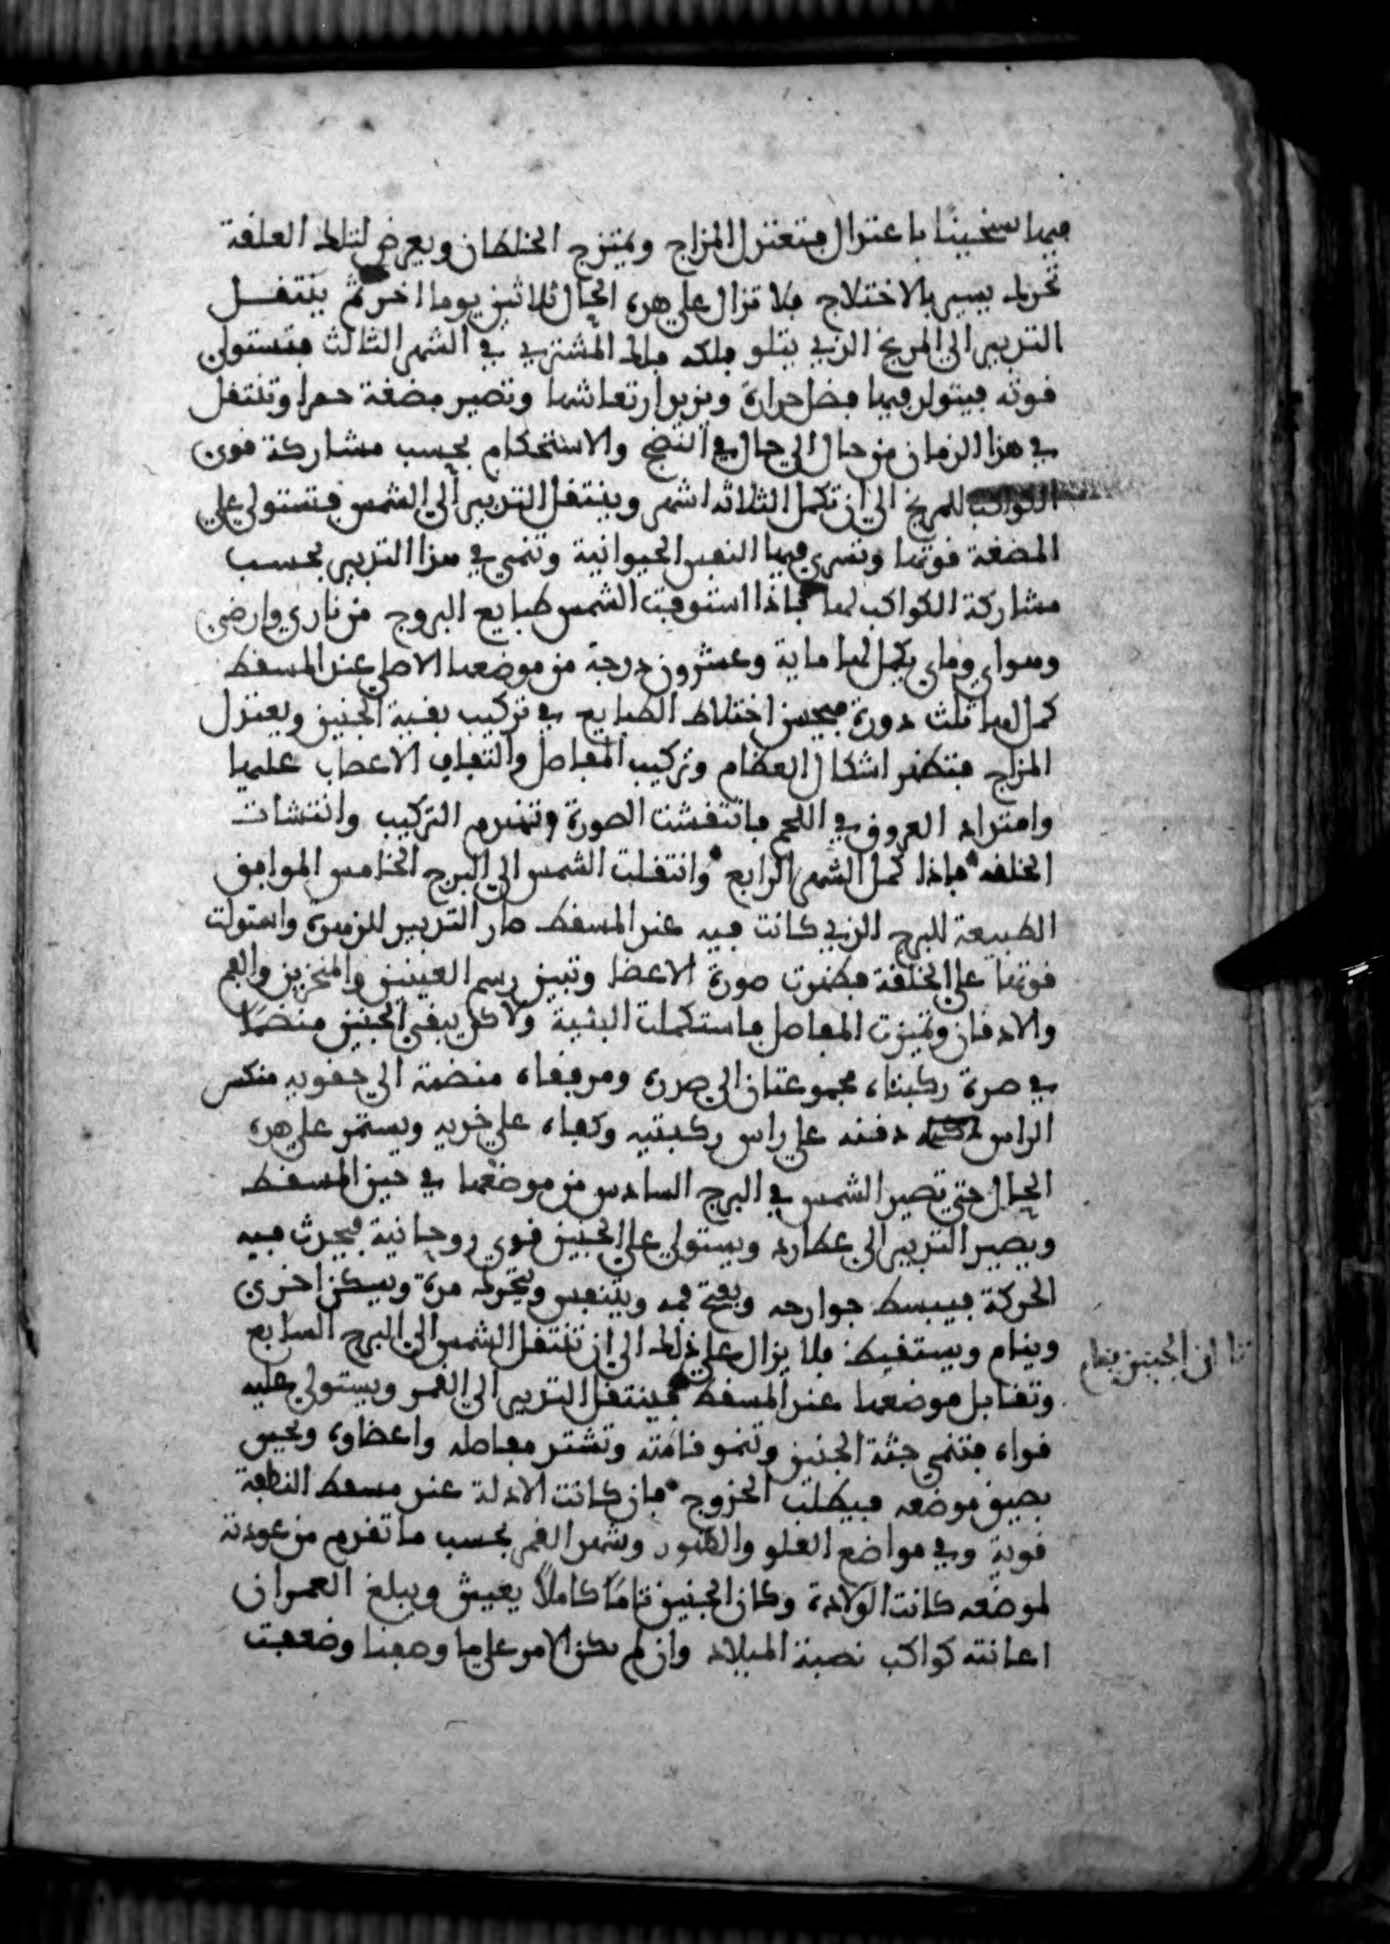 فيها تسخينا باعتدال فتعتدل المزاج ويمتزج الخلطان ويعرض لتلك العلقة
تحرك يسير بالاختلاج فلا تزال على هذه الحال ثلاثين يوما اخر ثم ينتقل
التدبير الى المريخ الذي يتلو فلكه فلك المشتري في الشهر الثالث فتستولي
قوته فيتولد فيها فضل حرارة ويزيد ارتعاشها وتصير مضغة حمرا وتنتقل
في هذا الزمان من حال الى حال في النضج والاستحكام بحسب مشاركة قوى
الكواكب للمريخ الى ان تكمل الثلاثة اشهر وينتقل التدبير الى الشمس فتستولي على
المضغة قوتها وتسري فيها النفس الحيوانية وتنمي في هذا التدبير بحسب
مشاركة الكواكب لها فاذا استوفت الشمس طبايع البروج من ناري وارضي
وهواي وماي بكمل لها ماية وعشرون درجة من موضعها الاصلي عند المسقط
كمل لها ثلث دورة فيحسن اختلاط الطبايع في تركيب بقية الجنين ويعتدل
المزاج فتظهر اشكال العظام وتركيب المفاصل والتفاف الاعصاب عليها
وامتداد العروق في اللحم فانتقشت الصورة وتهندم التركيب وانتشات
الخلقه فاذا كمل الشهر الرابع وانتقلت الشمس الى البرج الخامس الموافق
الطبيعة للبرج الذي كانت فيه عند المسقط صار التدبير للزهرة واستولت
قوتها على الخلقة فظهرت صورة الاعضا وتبين رسم العينين والمنخرين والفم
والاذنان وتميزت المفاصل فاستكملت البنية ولاكن يبقى الجنين منضما
في صرة ركبتاه مجموعتان الى صدره ومرفقاه منضمة الى حقويه منكس
الراس ذقنه على راس ركبتيه وكفاه على خديه ويستمر على هذه
الحال حتى تصير الشمس في البرج السادس من موضعها في حين المسقط
ويصير التدبير الى عطارد ويستولي على الجنين قوى روحانية فيحدث فيه
الحركة فيبسط جوارحه ويفتح فمه ويتنفس ويتحرك مرة ويسكن اخرى
وينام ويستقيظ فلا يزال على ذلك الى ان تنتقل الشمس الى البرج السابع
وتقابل موضعها عند المسقط فينتقل التدبير الى القمر ويستولي عليه
قواه فتنمي جثة الجنين وتنمو قامته وتشتد مفاصله واعضاوه ويحس
بضيق موضعه فيطلب الخروج فان كانت الادلة عند مسقط النطفة
قوية وفي مواضع العلو والظهور وشهد القمر بحسب ما تقدم من عودته
لموضعه كانت الولادة وكان الجنين تاما كاملا يعيش ويبلغ العمر ان
اعانته كواكب نصبة الميلاد وان لم يكن الامر على ما وصفنا وضعفت
ان الجنين ينام